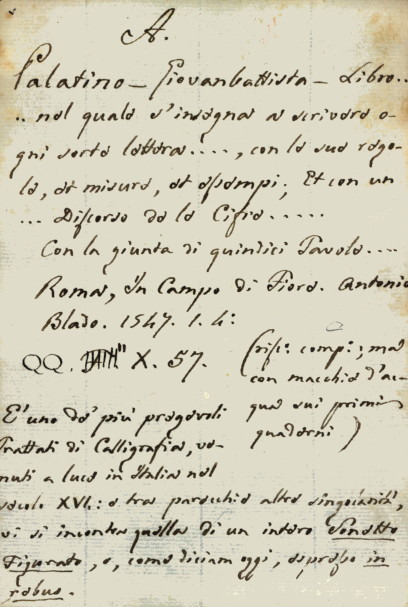 A.
Palatino – Giovanbattista – Libro..
.. nel quale s'insegna a scrivere o-
gni sorte lettera...., con le sue rego-
le, et misure, et essempi; Et con un
... Discorso de le Cifre.....
Con la giunta di quindici Tavole....
Roma, In Campo di Fiore. Antonio
Blado. 1547. 1. 4:
QQ. X. 57.
(risc: comp:; ma
con macchie d'ac-
qua sui primi
quaderni)
E' uno de' più pregevoli
Trattati di Calligrafia, ve-
nuti a luce in Italia nel
secolo XVI.: e tra parecchie altre singolarità,
vi si incontra quella di un intero Sonetto
Figurato, o, come diciam oggi, espresso in
rebus.